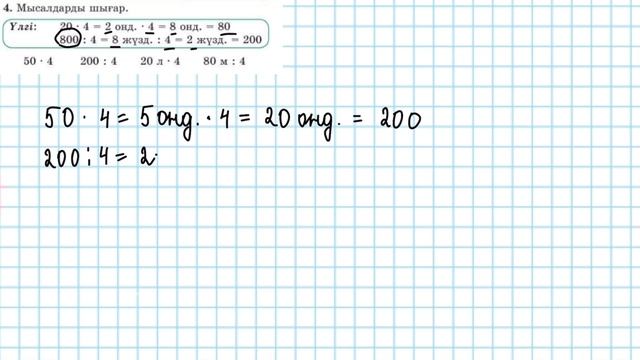 4. Мысалдарды шығар.
Үлгі: 20 · 4 = 2 онд. · 4 = 8 онд. = 80
800 : 4 = 8 жүзд. : 4 = 2 жүзд. = 200
50 · 4 200 : 4 20 л · 4 80 м : 4
50 · 4 = 5 онд. · 4 = 20 онд. = 200
200 : 4 = 2